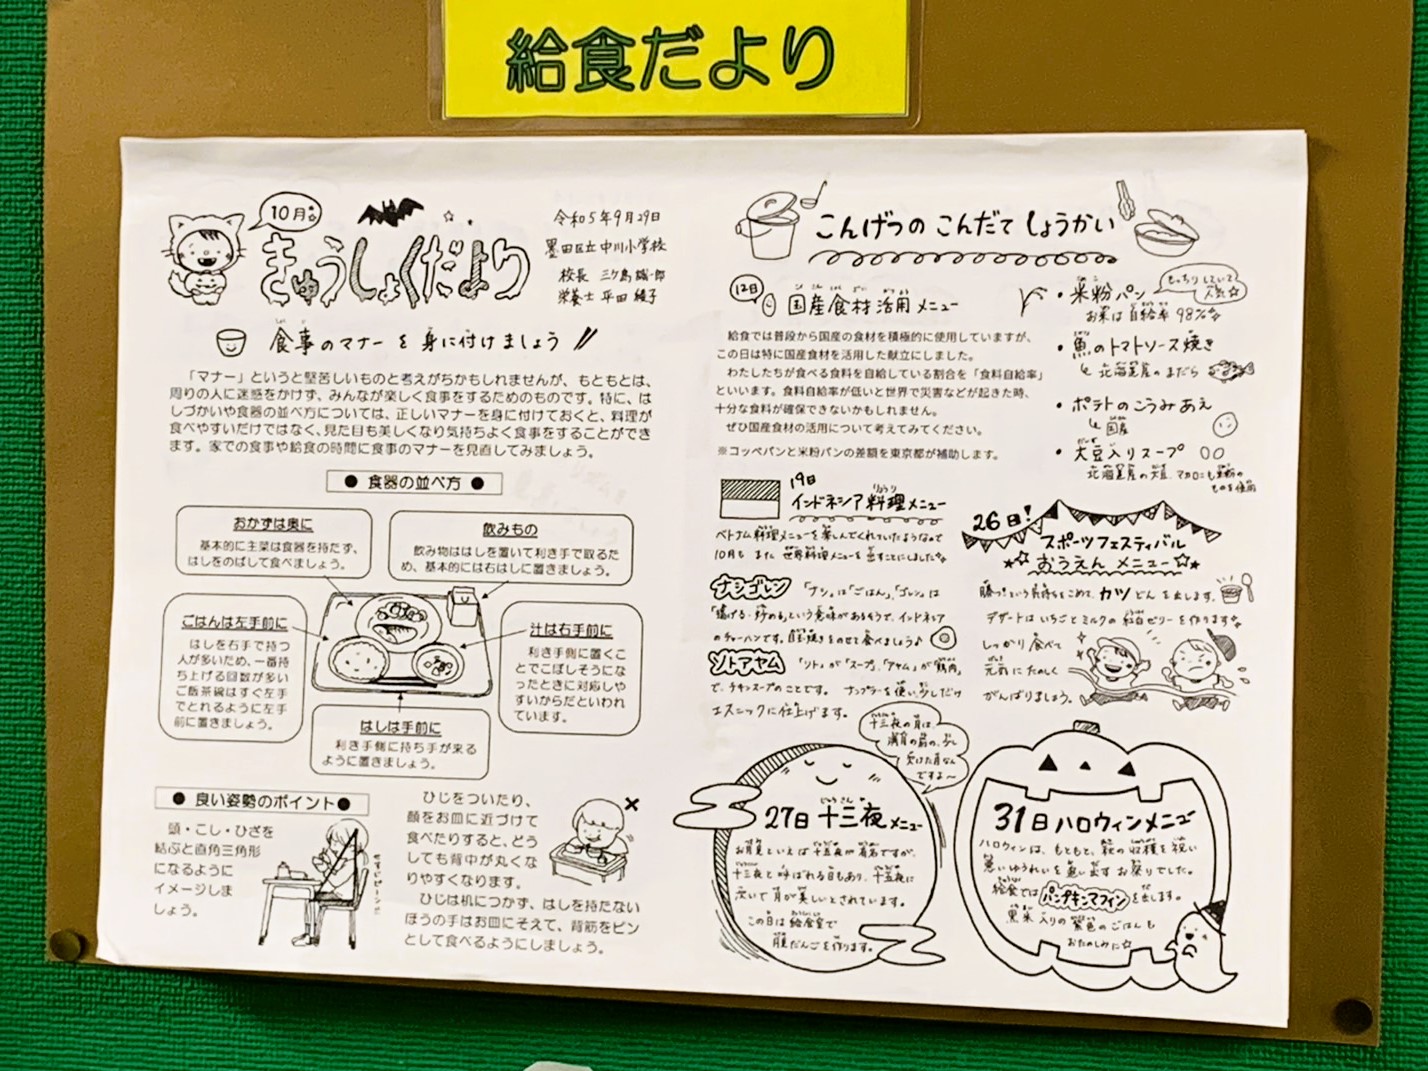 給食だより
10月
きゅうしょくだより
令和5年9月29日
墨田区立中川小学校
校長
栄養士 平田 綾子
食事のマナーを身に付けましょう
「マナー」というと堅苦しいものと考えがちかもしれませんが、もともとは、
周りの人に迷惑をかけず、みんなが楽しく食事をするためのものです。特に、は
しづかいや食器の並べ方については、正しいマナーを身に付けておくと、料理が
食べやすいだけではなく、見た目も美しくなり気持ちよく食事をすることができ
ます。家での食事や給食の時間に食事のマナーを見直してみましょう。
● 食器の並べ方 ●
おかずは奥に
基本的に主菜は食器を持たず、
はしをのばして食べましょう。
飲みもの
飲み物ははしを置いて利き手で取るた
め、基本的には右はしに置きましょう。
ごはんは左手前に
はしを右手で持つ
人が多いため、一番持
ち上げる回数が多い
ご飯茶碗はすぐ左手
でとれるように左手
前に置きましょう。
汁は右手前に
利き手側に置くこ
とでこぼしそうにな
ったときに対応しや
すいからだといわれ
ています。
はしは手前に
利き手側に持ち手が来る
ように置きましょう。
● 良い姿勢のポイント●
頭・こし・ひざを
結ぶと直角三角形
になるように
イメージしま
しょう。
せすじピーン!
ひじをついたり、
顔をお皿に近づけて
食べたりすると、どう
しても背中が丸くな
りやすくなります。
ひじは机につかず、はしを持たない
ほうの手はお皿にそえて、背筋をピン
として食べるようにしましょう。
こんげつの こんだて しょうかい
12日
国産食材活用メニュー
給食では普段から国産の食材を積極的に使用していますが、
この日は特に国産食材を活用した献立にしました。
わたしたちが食べる食料を自給している割合を「食料自給率」
といいます。食料自給率が低いと世界で災害などが起きた時、
十分な食料が確保できないかもしれません。
ぜひ国産食材の活用について考えてみてください。
※コッペパンと米粉パンの差額を東京都が補助します。
・米粉パン
もっちりしていて
人気☆
お米は自給率98%
・魚のトマトソース焼き
北海道産のまだら
・ポテトのこうみあえ
国産
・大豆入りスープ
北海道産の大豆、マカロニも米粉の
ものを使用
19日
インドネシア料理メニュー
ベトナム料理メニューを楽しんでくれていたようなので
10月もまた世界料理メニューを出すことにしました
ナシゴレン 「ナシ」は「ごはん」、「ゴレン」は
「揚げる・炒める」という意味があるそうで、インドネシア
のチャーハンです。目玉焼きをのせて食べましょう♪
ソトアヤム 「ソト」が「スープ」、「アヤム」が「鶏肉」
で、チキンスープのことです。ナンプラーを使い、少しだけ
エスニックに仕上げます。
26日!
スポーツフェスティバル
☆おうえんメニュー☆
勝つ!という気持ちをこめて、カツどんを出します。
デザートはいちごとミルクの紅白ゼリーを作ります
しっかり食べて
元気にたのしく
がんばりましょう。
十三夜の月は
満月の前の、少し
欠けた月なん
ですよ〜
27日 十三夜メニュー
お月見といえば十五夜が有名ですが、
十三夜と呼ばれる日もあり、十五夜に
次いで月が美しいとされています。
この日は給食室で
月見だんごを作ります。
31日 ハロウィンメニュー
ハロウィンは、もともと、秋の収穫を祝い
悪いゆうれいを追い出すお祭りでした。
給食ではパンプキンマフィンを出します。
黒米入りの紫色のごはんも
おたのしみに☆